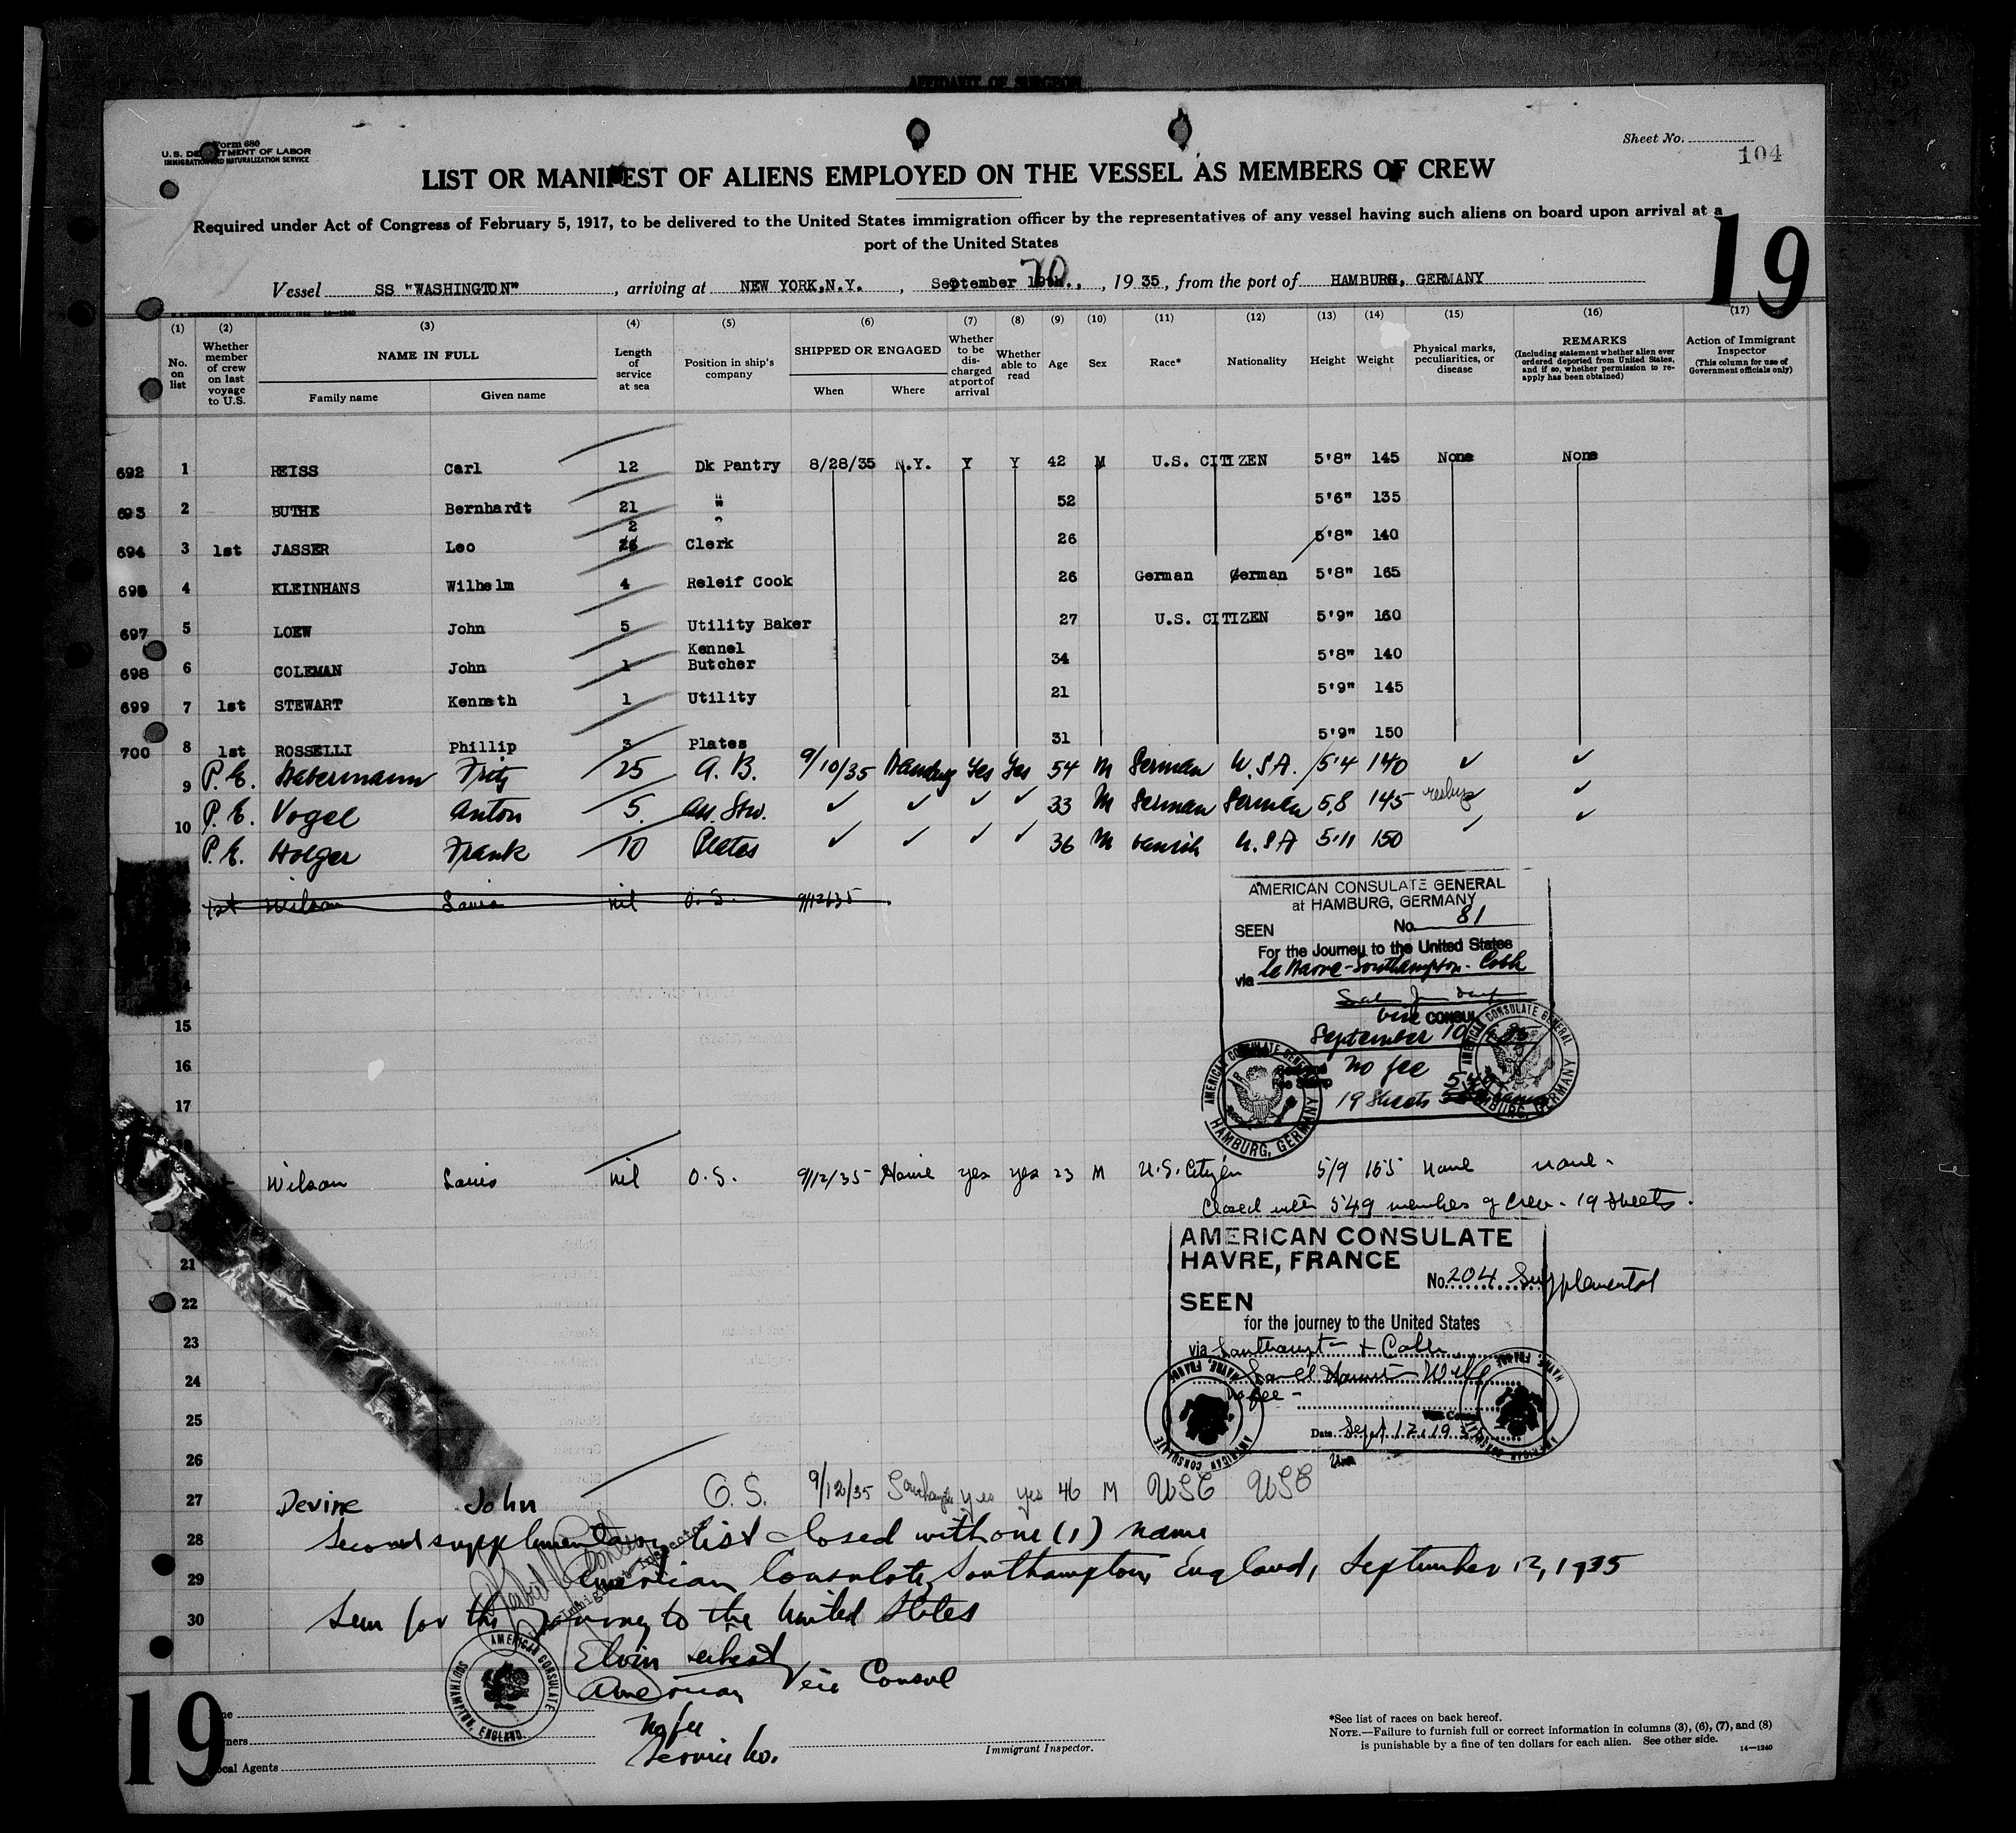 AFFIDAVIT OF SURGEON
Form 680
U.S. DEPARTMENT OF LABOR
IMMIGRATION AND NATURALIZATION SERVICE
Sheet No.
104
LIST OR MANIFEST OF ALIENS EMPLOYED ON THE VESSEL AS MEMBERS OF CREW
Required under Act of Congress of February 5, 1917, to be delivered to the United States immigration officer by the representatives of any vessel having such aliens on board upon arrival at a
port of the United States
19
Vessel SS "WASHINGTON", arriving at NEW YORK,N.Y., September 19th., 20, 1935, from the port of HAMBURG, GERMANY
(1) No. on list
(2) Whether member of crew on last voyage to U.S.
(3) NAME IN FULL Family name Given name
(4) Length of service at sea
(5) Position in ship's company
(6) SHIPPED OR ENGAGED When Where
(7) Whether to be discharged at port of arrival
(8) Whether able to read
(9) Age
(10) Sex
(11) Race*
(12) Nationality
(13) Height
(14) Weight
(15) Physical marks, peculiarities, or disease
(16) REMARKS (Including statement whether alien ever ordered deported from United States, and if so, whether permission to reapply has been obtained)
(17) Action of Immigrant Inspector (This column for use of Government officials only)
692 1 REISS Carl 12 Dk Pantry 8/28/35 N.Y. Y Y 42 M U.S. CITIZEN 5'8" 145 None None
693 2 BUTHE Bernhardt 21 " 52 5'6" 135
694 3 1st JASSER Leo 2 Clerk 26 5'8" 140
695 4 KLEINHANS Wilhelm 4 Releif Cook 26 German German 5'8" 165
697 5 LOEW John 5 Utility Baker 27 U.S. CITIZEN 5'9" 160
698 6 COLEMAN John 1 Kennel Butcher 34 5'8" 140
699 7 1st STEWART Kenneth 1 Utility 21 5'9" 145
700 8 1st ROSSELLI Phillip 3 Plates 31 5'9" 150
9 P.E. Habermann Fritz 25 A.B. 9/10/35 Hamburg Yes Yes 54 M German U.S.A. 5'4 140 ✓ ✓
10 P.E. Vogel Anton 5 Ass. Stw. ✓ ✓ ✓ ✓ 33 M German German 5,8 145 ✓
P.E. Holger Frank 10 Plates ✓ ✓ ✓ ✓ 36 M Danish U.S.A 5'11 150 ✓ ✓
1st Wilson Louis nil O.S. 9/12/35
AMERICAN CONSULATE GENERAL
at HAMBURG, GERMANY
SEEN No. 81
For the Journey to the United States
via Le Havre-Southampton-Cobh
Vice CONSUL
September 10
No fee
19 Sheets
AMERICAN CONSULATE GENERAL HAMBURG, GERMANY
AMERICAN CONSULATE GENERAL HAMBURG, GERMANY
15
16
17
Wilson Louis nil O.S. 9/12/35 Havre yes yes 23 M U.S. Citizen 5/9 155 None none-
Closed with 549 members of Crew - 19 sheets.
AMERICAN CONSULATE
HAVRE, FRANCE
No. 204 Supplemental
SEEN
for the journey to the United States
via Southampton + Cobh
No fee -
Date Sept 12, 19
AMERICAN CONSULATE HAVRE, FRANCE
AMERICAN CONSULATE HAVRE, FRANCE
21
22
23
24
25
26
27 Devine John O.S. 9/12/35 Southampton yes yes 46 M USC USC
28 Second supplementary list closed with one (1) name
29 American Consulate, Southampton, England, September 12, 1935
30 Seen for the journey to the United States
Immigrant Inspector
AMERICAN CONSULATE SOUTHAMPTON, ENGLAND.
Elvin Seibert
American Vice Consul
No fee
Service No.
19
Local Agents
Immigrant Inspector.
*See list of races on back hereof.
NOTE.—Failure to furnish full or correct information in columns (3), (6), (7), and (8)
is punishable by a fine of ten dollars for each alien. See other side.
14—1240